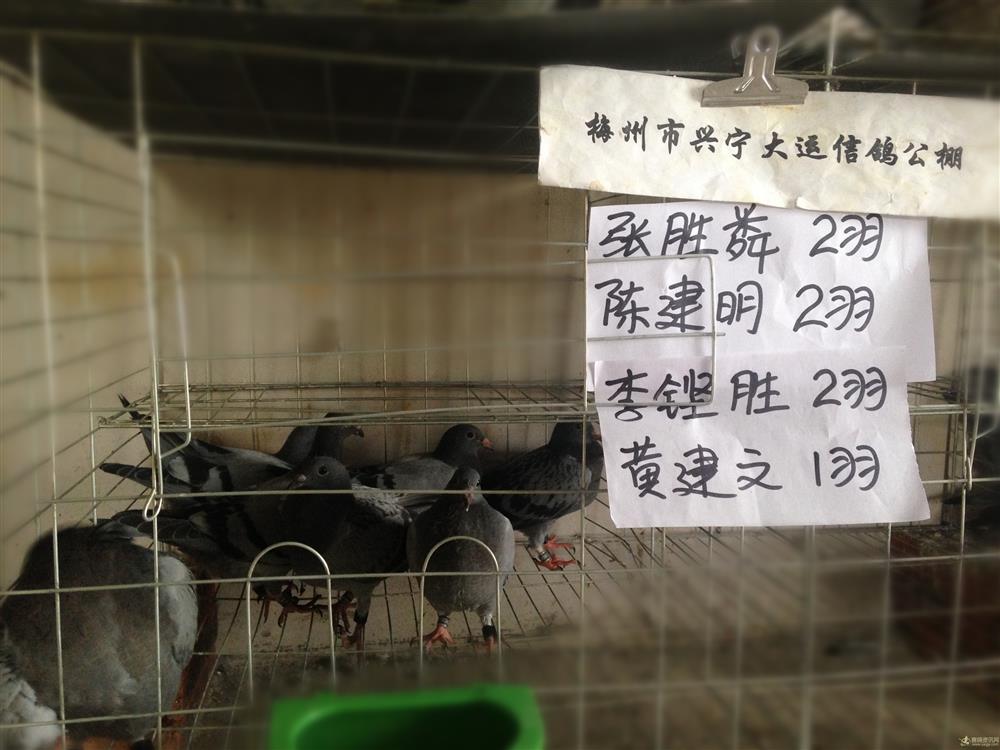 梅州市兴宁大运信鸽公棚
张胜粦 2羽
陈建明 2羽
李铿胜 2羽
黄建文 1羽